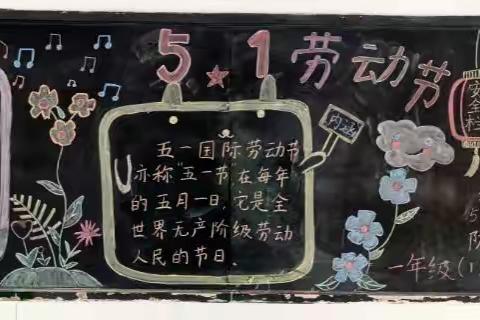 5★1劳动节
安全栏
内涵
五一国际劳动节
亦称"五一节"在每年
的五月一日,它是全
世界无产阶级劳动
人民的节日.
一年级(1